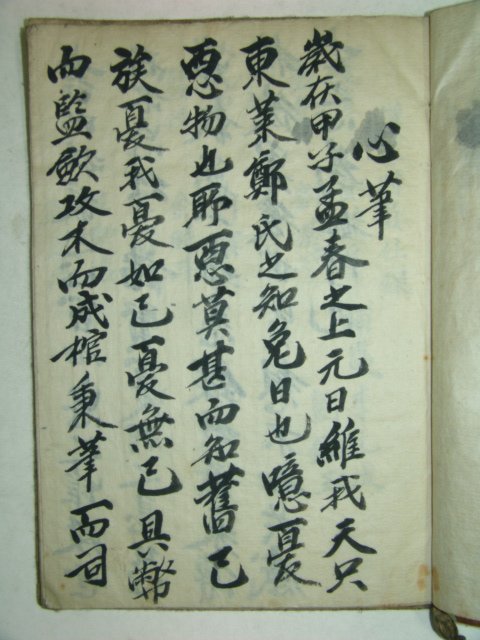 心筆
歲在甲子孟春之上元日維我天只
東萊鄭氏之知兔日也噫憂
慝物也耶慝莫甚而知舊已
族憂我憂如已憂無已具幣
而監斂攻木而成棺秉筆而司